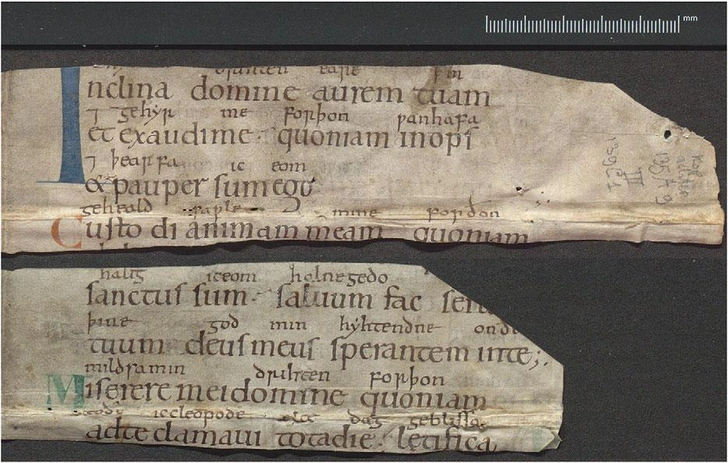 mm
drihten eare þin
Inclina domine aurem tuam
⁊ gehyr me forþon þanhafa
et exaudi me quoniam inopſ
⁊ þearfa ic eom
& pauper ſum ego
geheald saƿle mine forðon
Cuſtodi animam meam quoniam
halig ic eom hal
ſanctuſ ſum ſaluum fac
þine god min hyhtendne on
tuum deuſ meuſ ſperantem in te;
mildra min drihten forþon
Miſerere mei domine quoniam
ic cleopode ælce dæg gebliſſa
ad te clamaui tota die letifica